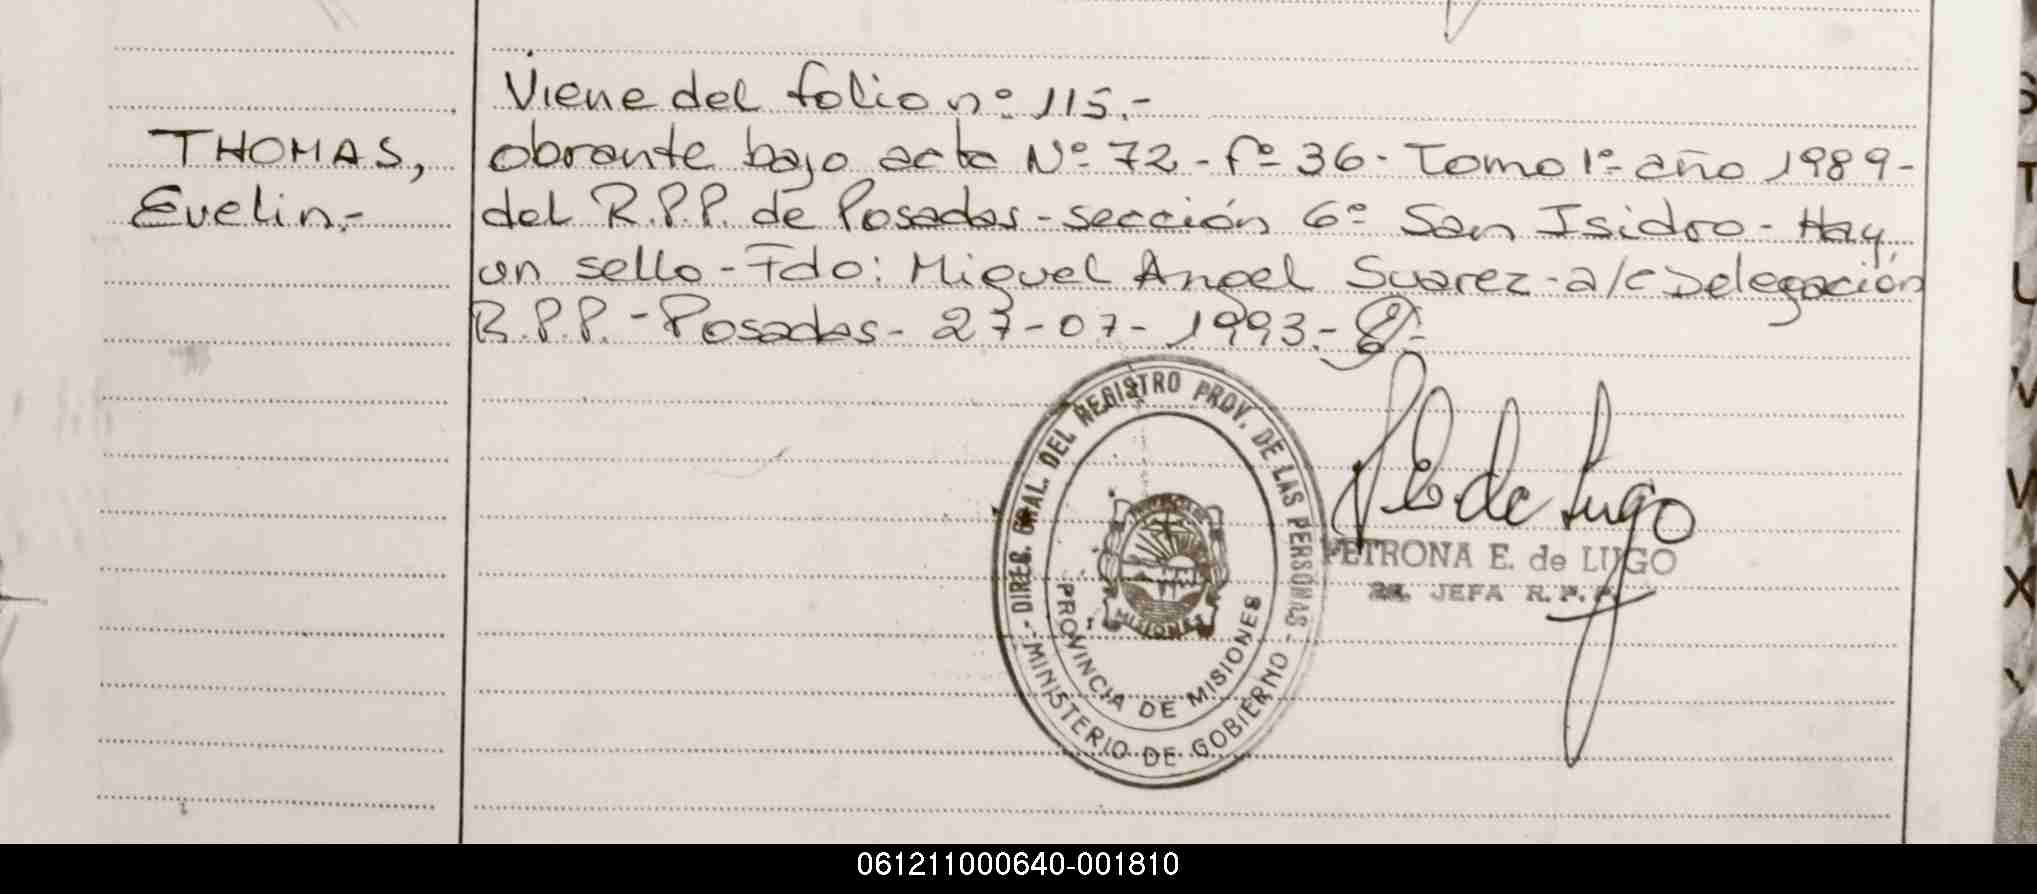 Viene del folio nº 115.-
THOMAS,
Evelin.-
obrante bajo acta Nº 72 - fº 36 - Tomo 1º - año 1989 -
del R.P.P. de Posadas - sección 6º San Isidro - Hay
un sello - Fdo: Miguel Angel Suarez - a/c Delegación
R.P.P. - Posadas - 27-07-1993.-
DIREC. GRAL. DEL REGISTRO PROV. DE LAS PERSONAS -
- MINISTERIO DE GOBIERNO
PROVINCIA DE MISIONES
MISIONES
de Lugo
PETRONA E. de LUGO
JEFA R.P.P.
S
T
U
V
W
X
061211000640-001810